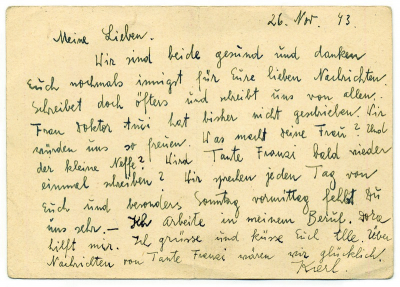 26. Nov. 43.
Meine Lieben.
Wir sind beide gesund und danken
Euch nochmals innigst für Eure lieben Nachrichten
Schreibet doch öfters und schreibt uns von allen.
Frau doktor hat bisher nicht geschrieben. Wir
würden uns so freuen. Was macht deine Frau? Und
der kleine Neffe? Wird Tante Franzi bald wieder
einmal schreiben? Wir sprechen jeden Tag von
Euch und besonders Sonntag vormittag fehlst Du
uns sehr. – Ich arbeite in meinem Beruf. Dora
hilft mir. Ich grüsse und küsse Euch Alle. Über
Nachrichten von Tante Franzi wären wir glücklich.